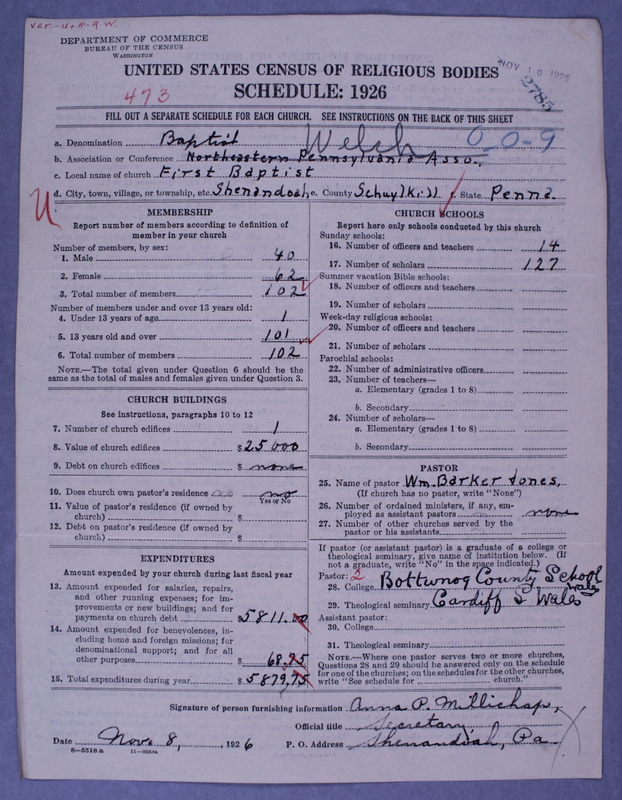 Ver.-U+R-A.W.
DEPARTMENT OF COMMERCE
BUREAU OF THE CENSUS
WASHINGTON
NOV 10 1926
2785
UNITED STATES CENSUS OF RELIGIOUS BODIES
SCHEDULE: 1926
473
FILL OUT A SEPARATE SCHEDULE FOR EACH CHURCH. SEE INSTRUCTIONS ON THE BACK OF THIS SHEET
a. Denomination Baptist Welch 0-0-9
b. Association or Conference Northeastern Pennsylvania Asso.,
c. Local name of church First Baptist
d. City, town, village, or township, etc. Shenandoah, e. County Schuylkill f. State Penna.
U.
MEMBERSHIP
Report number of members according to definition of
member in your church
Number of members, by sex:
1. Male 40
2. Female 62
3. Total number of members 102
Number of members under and over 13 years old:
4. Under 13 years of age 1
5. 13 years old and over 101
6. Total number of members 102
NOTE.—The total given under Question 6 should be the
same as the total of males and females given under Question 3.
CHURCH BUILDINGS
See instructions, paragraphs 10 to 12
7. Number of church edifices 1
8. Value of church edifices $25000
9. Debt on church edifices $ none
10. Does church own pastor's residence no
Yes or No
11. Value of pastor's residence (if owned by
church) $
12. Debt on pastor's residence (if owned by
church) $
EXPENDITURES
Amount expended by your church during last fiscal year
13. Amount expended for salaries, repairs,
and other running expenses; for im-
provements or new buildings; and for
payments on church debt $5811.00
14. Amount expended for benevolences, in-
cluding home and foreign missions; for
denominational support; and for all
other purposes $ 68.75
15. Total expenditures during year $5879.75
CHURCH SCHOOLS
Report here only schools conducted by this church
Sunday schools:
16. Number of officers and teachers 14
17. Number of scholars 127
Summer vacation Bible schools:
18. Number of officers and teachers
19. Number of scholars
Week-day religious schools:
20. Number of officers and teachers
21. Number of scholars
Parochial schools:
22. Number of administrative officers
23. Number of teachers—
a. Elementary (grades 1 to 8)
b. Secondary
24. Number of scholars—
a. Elementary (grades 1 to 8)
b. Secondary
PASTOR
25. Name of pastor Wm. Barker Jones,
(If church has no pastor, write "None")
26. Number of ordained ministers, if any, em-
ployed as assistant pastors none
27. Number of other churches served by the
pastor or his assistants
If pastor (or assistant pastor) is a graduate of a college or
theological seminary, give name of institution below. (If
not a graduate, write "No" in the space indicated.)
Pastor: 2
28. College Bottwnog County School
Wales
29. Theological seminary Cardiff S Wales
Assistant pastor:
30. College
31. Theological seminary
NOTE.—Where one pastor serves two or more churches,
Questions 28 and 29 should be answered only on the schedule
for one of the churches; on the schedules for the other churches,
write "See schedule for church."
Signature of person furnishing information Anna P. Millichap,
Official title Secretary,
Date Nov. 8, 1926 P. O. Address Shenandoah, Pa
8-5518a